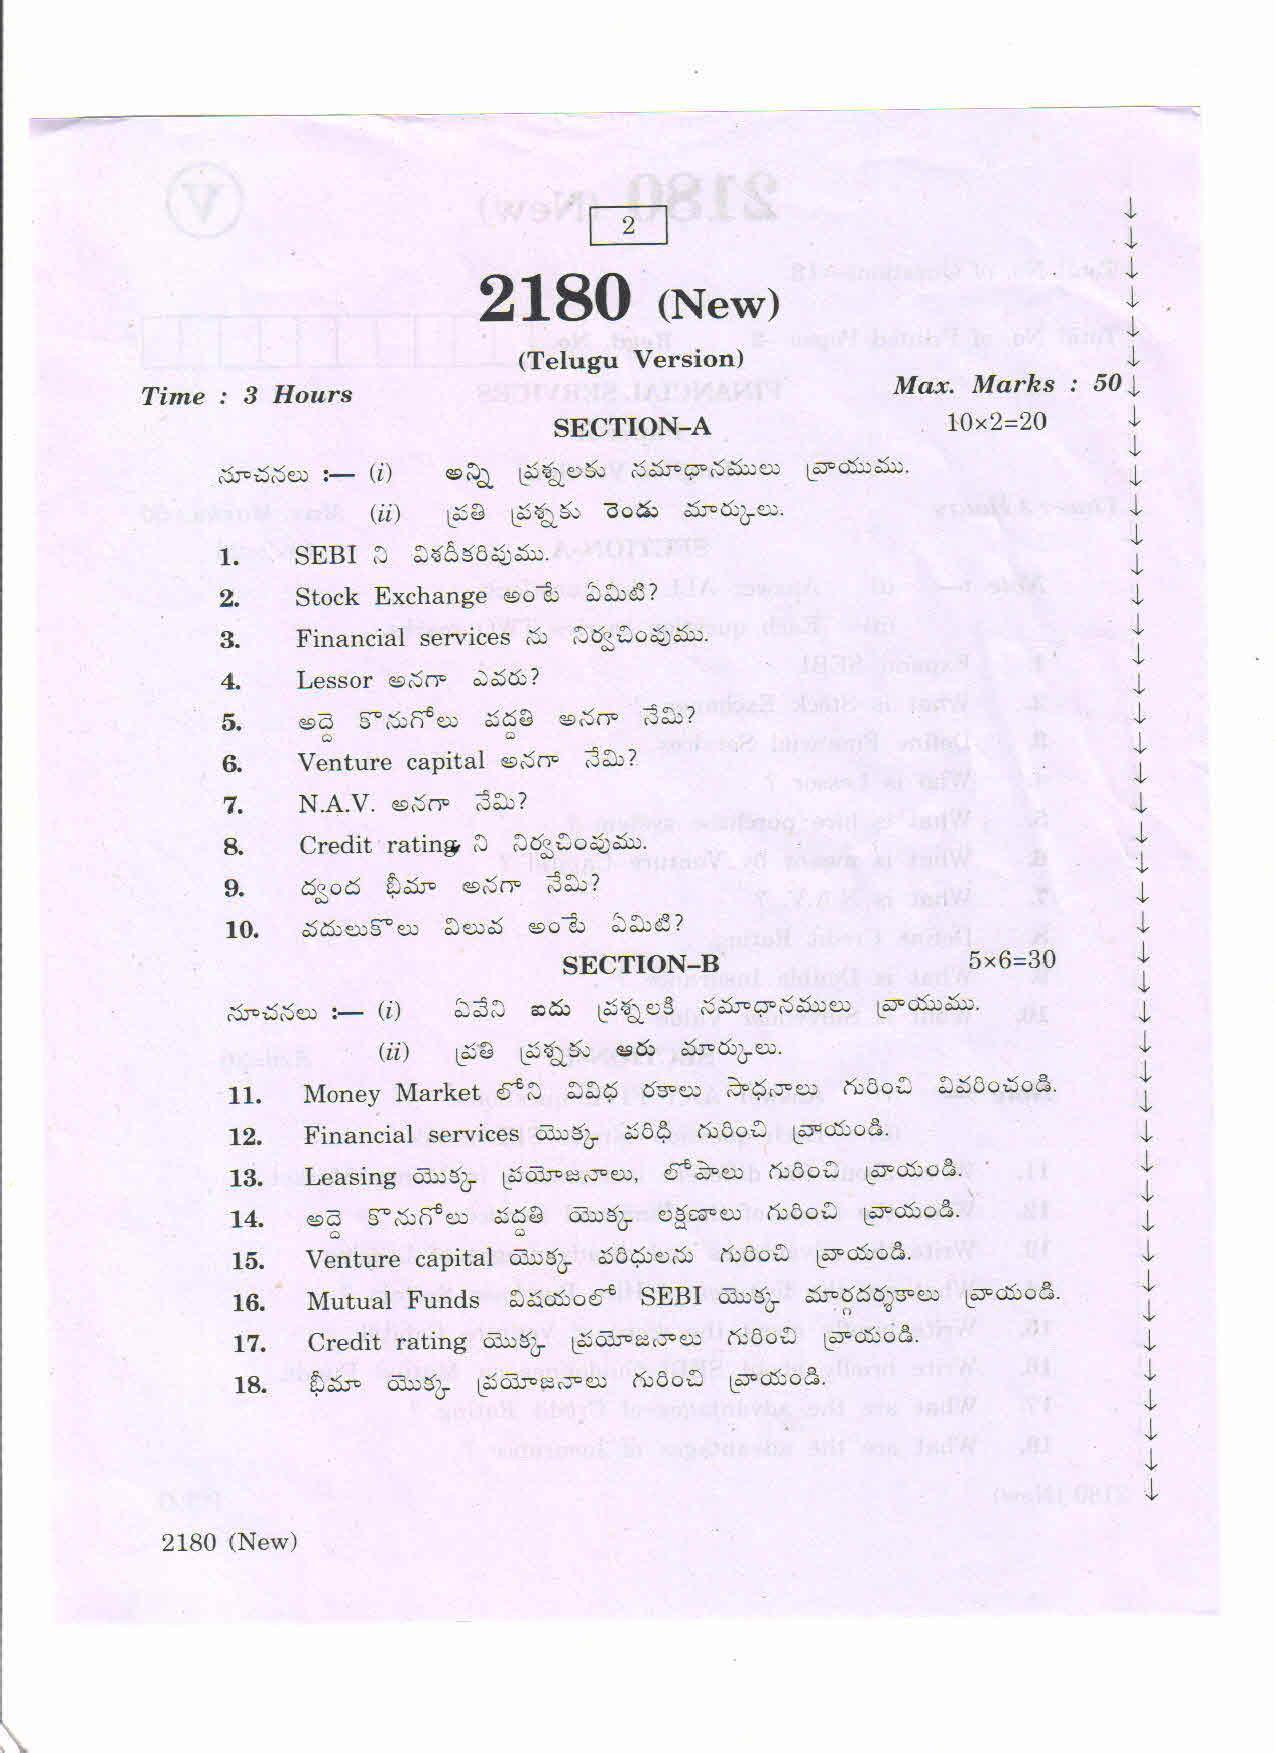 2
2180 (New)
(Telugu Version)
Time : 3 Hours
Max. Marks : 50
SECTION–A
10×2=20
సూచనలు :— (i) అన్ని ప్రశ్నలకు సమాధానములు వ్రాయుము.
(ii) ప్రతి ప్రశ్నకు రెండు మార్కులు.
1. SEBI ని విశదీకరింపుము.
2. Stock Exchange అంటే ఏమిటి?
3. Financial services ను నిర్వచింపుము.
4. Lessor అనగా ఎవరు?
5. అద్దె కొనుగోలు పద్ధతి అనగా నేమి?
6. Venture capital అనగా నేమి?
7. N.A.V. అనగా నేమి?
8. Credit rating ని నిర్వచింపుము.
9. ద్వంద భీమా అనగా నేమి?
10. వదులుకొలు విలువ అంటే ఏమిటి?
SECTION–B
5×6=30
సూచనలు :— (i) ఏవేని ఐదు ప్రశ్నలకి సమాధానములు వ్రాయుము.
(ii) ప్రతి ప్రశ్నకు ఆరు మార్కులు.
11. Money Market లోని వివిధ రకాలు సాధనాలు గురించి వివరించండి.
12. Financial services యొక్క పరిధి గురించి వ్రాయండి.
13. Leasing యొక్క ప్రయోజనాలు, లోపాలు గురించి వ్రాయండి.
14. అద్దె కొనుగోలు పద్ధతి యొక్క లక్షణాలు గురించి వ్రాయండి.
15. Venture capital యొక్క పరిధులను గురించి వ్రాయండి.
16. Mutual Funds విషయంలో SEBI యొక్క మార్గదర్శకాలు వ్రాయండి.
17. Credit rating యొక్క ప్రయోజనాలు గురించి వ్రాయండి.
18. భీమా యొక్క ప్రయోజనాలు గురించి వ్రాయండి.
2180 (New)